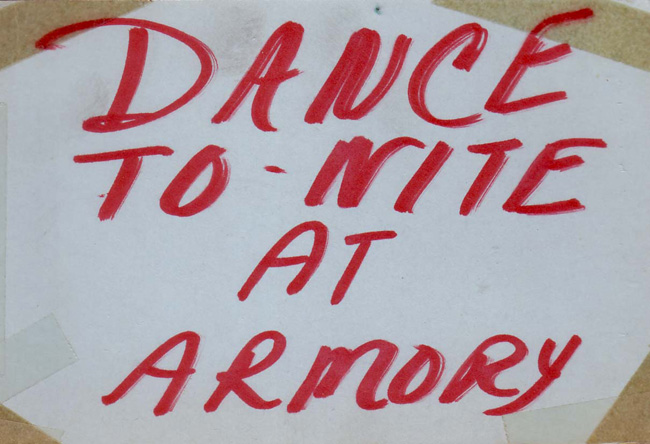 DANCE
TO-NITE
AT
ARMORY